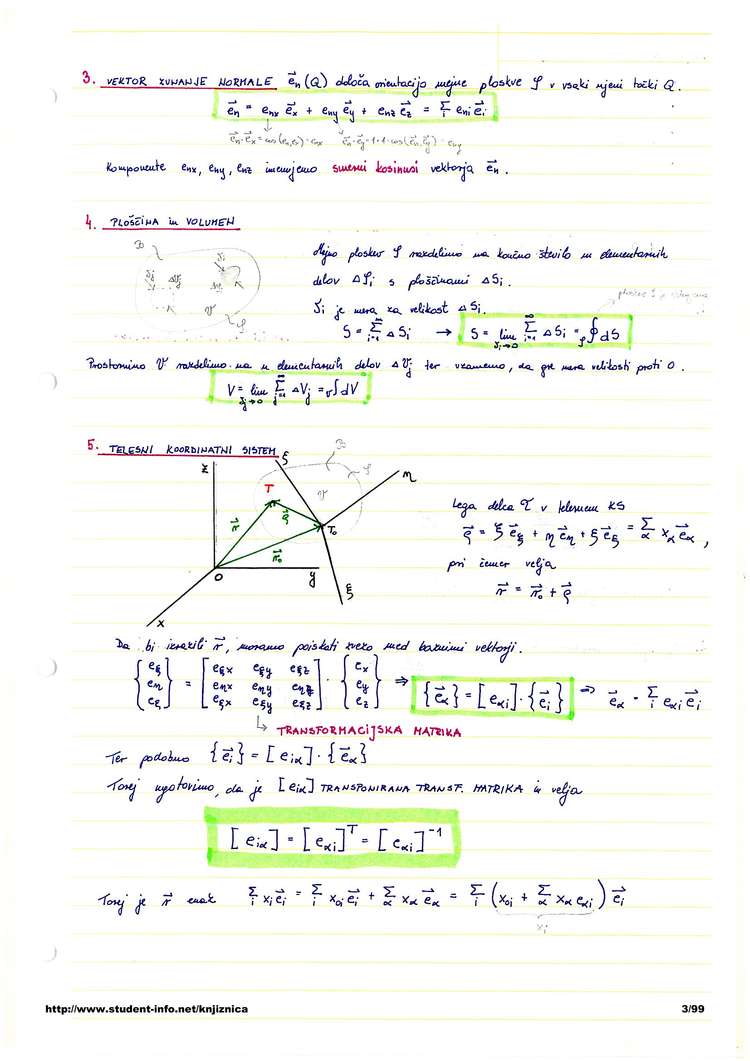 3. VEKTOR ZUNANJE NORMALE e⃗n (Q) določa orientacijo mejne ploskve 𝒮 v vsaki njeni točki Q.
e⃗n = enx e⃗x + eny e⃗y + enz e⃗z = Σi eni e⃗i
e⃗n·e⃗x = cos(en,ex) = enx e⃗n·e⃗y = 1·1·cos(e⃗n,e⃗y) = eny
Komponente enx, eny, enz imenujemo smerni kosinusi vektorja e⃗n.
4. PLOŠČINA in VOLUMEN
Mejno ploskev 𝒮 razdelimo na končno število n elementarnih
delov Δ𝒮i s ploščinami ΔSi.
δi je mera za velikost ΔSi.
S = Σ i=1 ∞ ΔSi → S = lim δi→0 Σ i=1 ∞ ΔSi = 𝒮∮ dS
Prostornino 𝒱 razdelimo na n elementarnih delov Δ𝒱j ter vzamemo, da gre mera velikosti proti 0.
V = lim δj→0 Σ j=1 ∞ ΔVj = 𝒱∫ dV
5. TELESNI KOORDINATNI SISTEM
z ζ ℬ 𝒮 𝒱 η
T ρ⃗ T₀ r⃗ r⃗₀
O y x ξ
Lega delca T v telesnem KS
ρ⃗ = ξ e⃗ξ + η e⃗η + ζ e⃗ζ = Σα xα e⃗α ,
pri čemer velja
r⃗ = r⃗₀ + ρ⃗
Da bi izrazili r⃗, moramo poiskati zvezo med baznimi vektorji.
{eξ eη eζ} = [eξx eξy eξz eηx eηy eηz eζx eζy eζz] · {ex ey ez} ⇒ {e⃗α} = [eαi] · {e⃗i} ⇒ e⃗α = Σi eαi e⃗i
↳ TRANSFORMACIJSKA MATRIKA
Ter podobno {e⃗i} = [eiα] · {e⃗α}
Torej ugotovimo, da je [eiα] TRANSPONIRANA TRANSF. MATRIKA in velja
[eiα] = [eαi]ᵀ = [eαi]⁻¹
Torej je r⃗ enak Σi xi e⃗i = Σi x₀i e⃗i + Σα xα e⃗α = Σi (x₀i + Σα xα eαi) e⃗i
xi
http://www.student-info.net/knjiznica 3/99